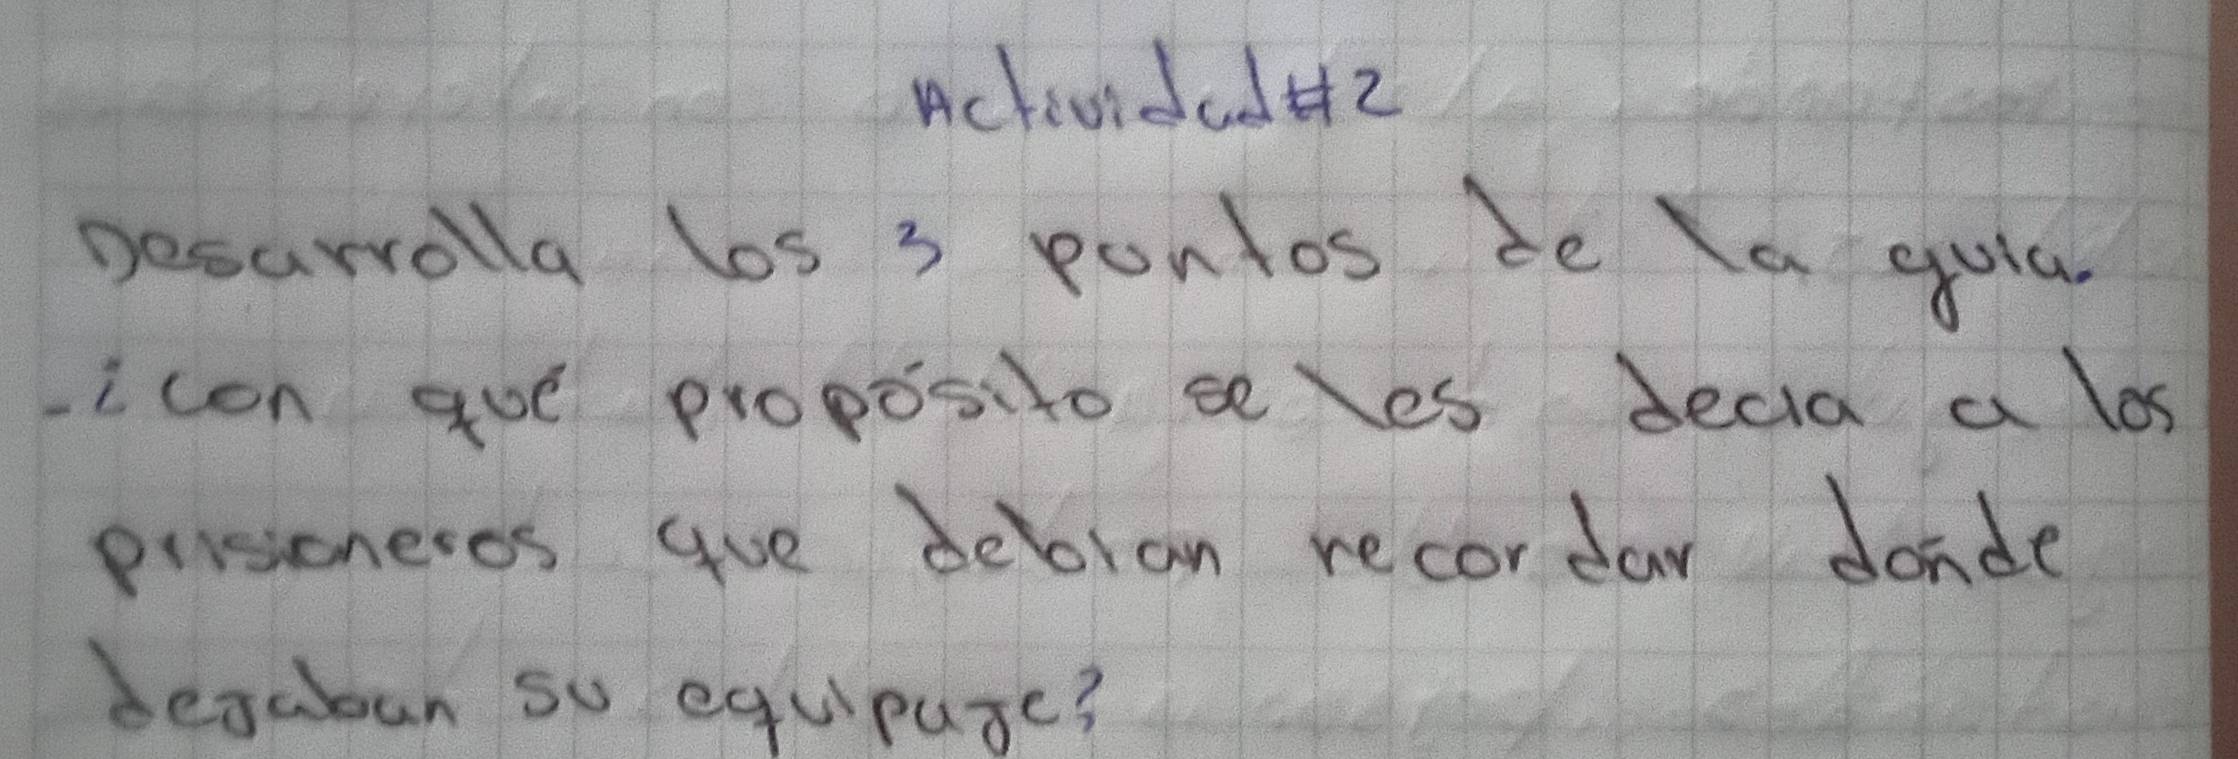 Actividad #2
Desarrolla los 3 puntos de la guia.
-¿con qué propósito se les decia a los
prisioneros que debian recordar dónde
dejaban su equipaje?